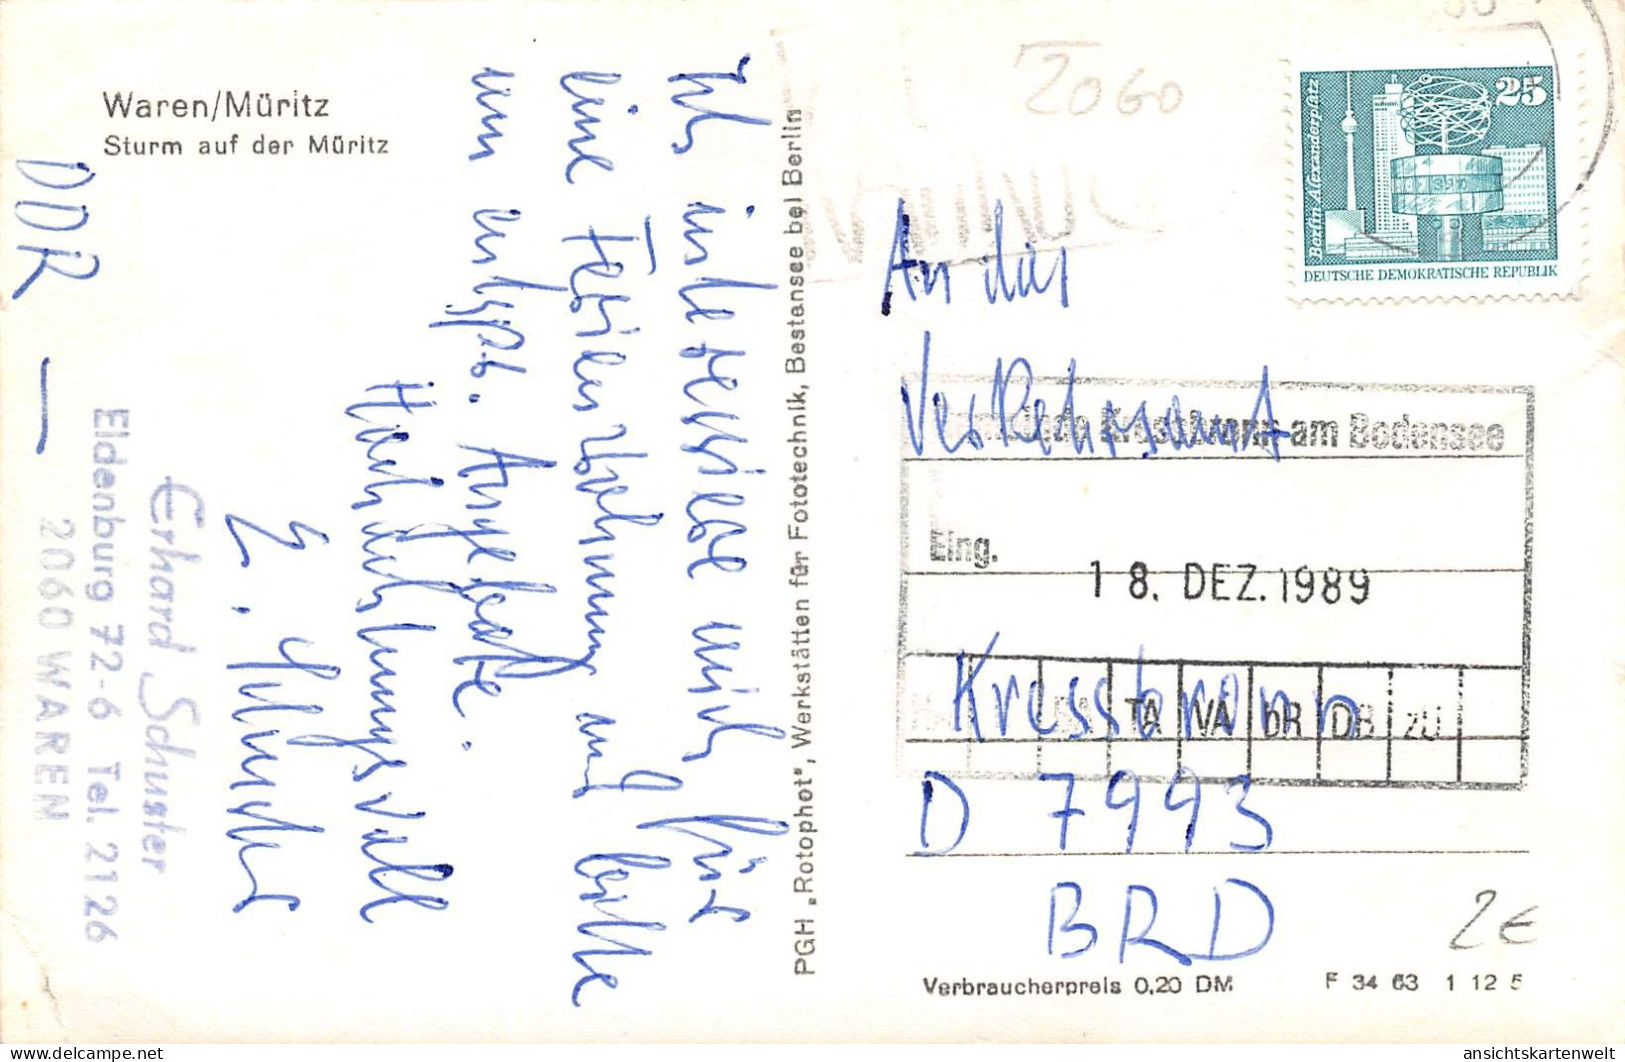 Waren/Müritz
Sturm auf der Müritz
Ich interessiere mich für
eine Ferienwohnung und bitte
um entspr. Angebote.
Hochachtungsvoll
E. Schuster
DDR —
Erhard Schuster
Eldenburg 72-6 Tel. 2126
2060 WAREN
PGH „Rotophot", Werkstätten für Fototechnik, Bestensee bei Berlin
2060
25
Berlin Alexanderplatz
DEUTSCHE DEMOKRATISCHE REPUBLIK
An das
Verkehrsamt
Kressbronn am Bodensee
Eing.
18. DEZ. 1989
Kressbronn
TA VA bR DB zU
D 7993
BRD
2€
Verbraucherpreis 0,20 DM
F 34 63 1 12 5
ansichtskartenwelt